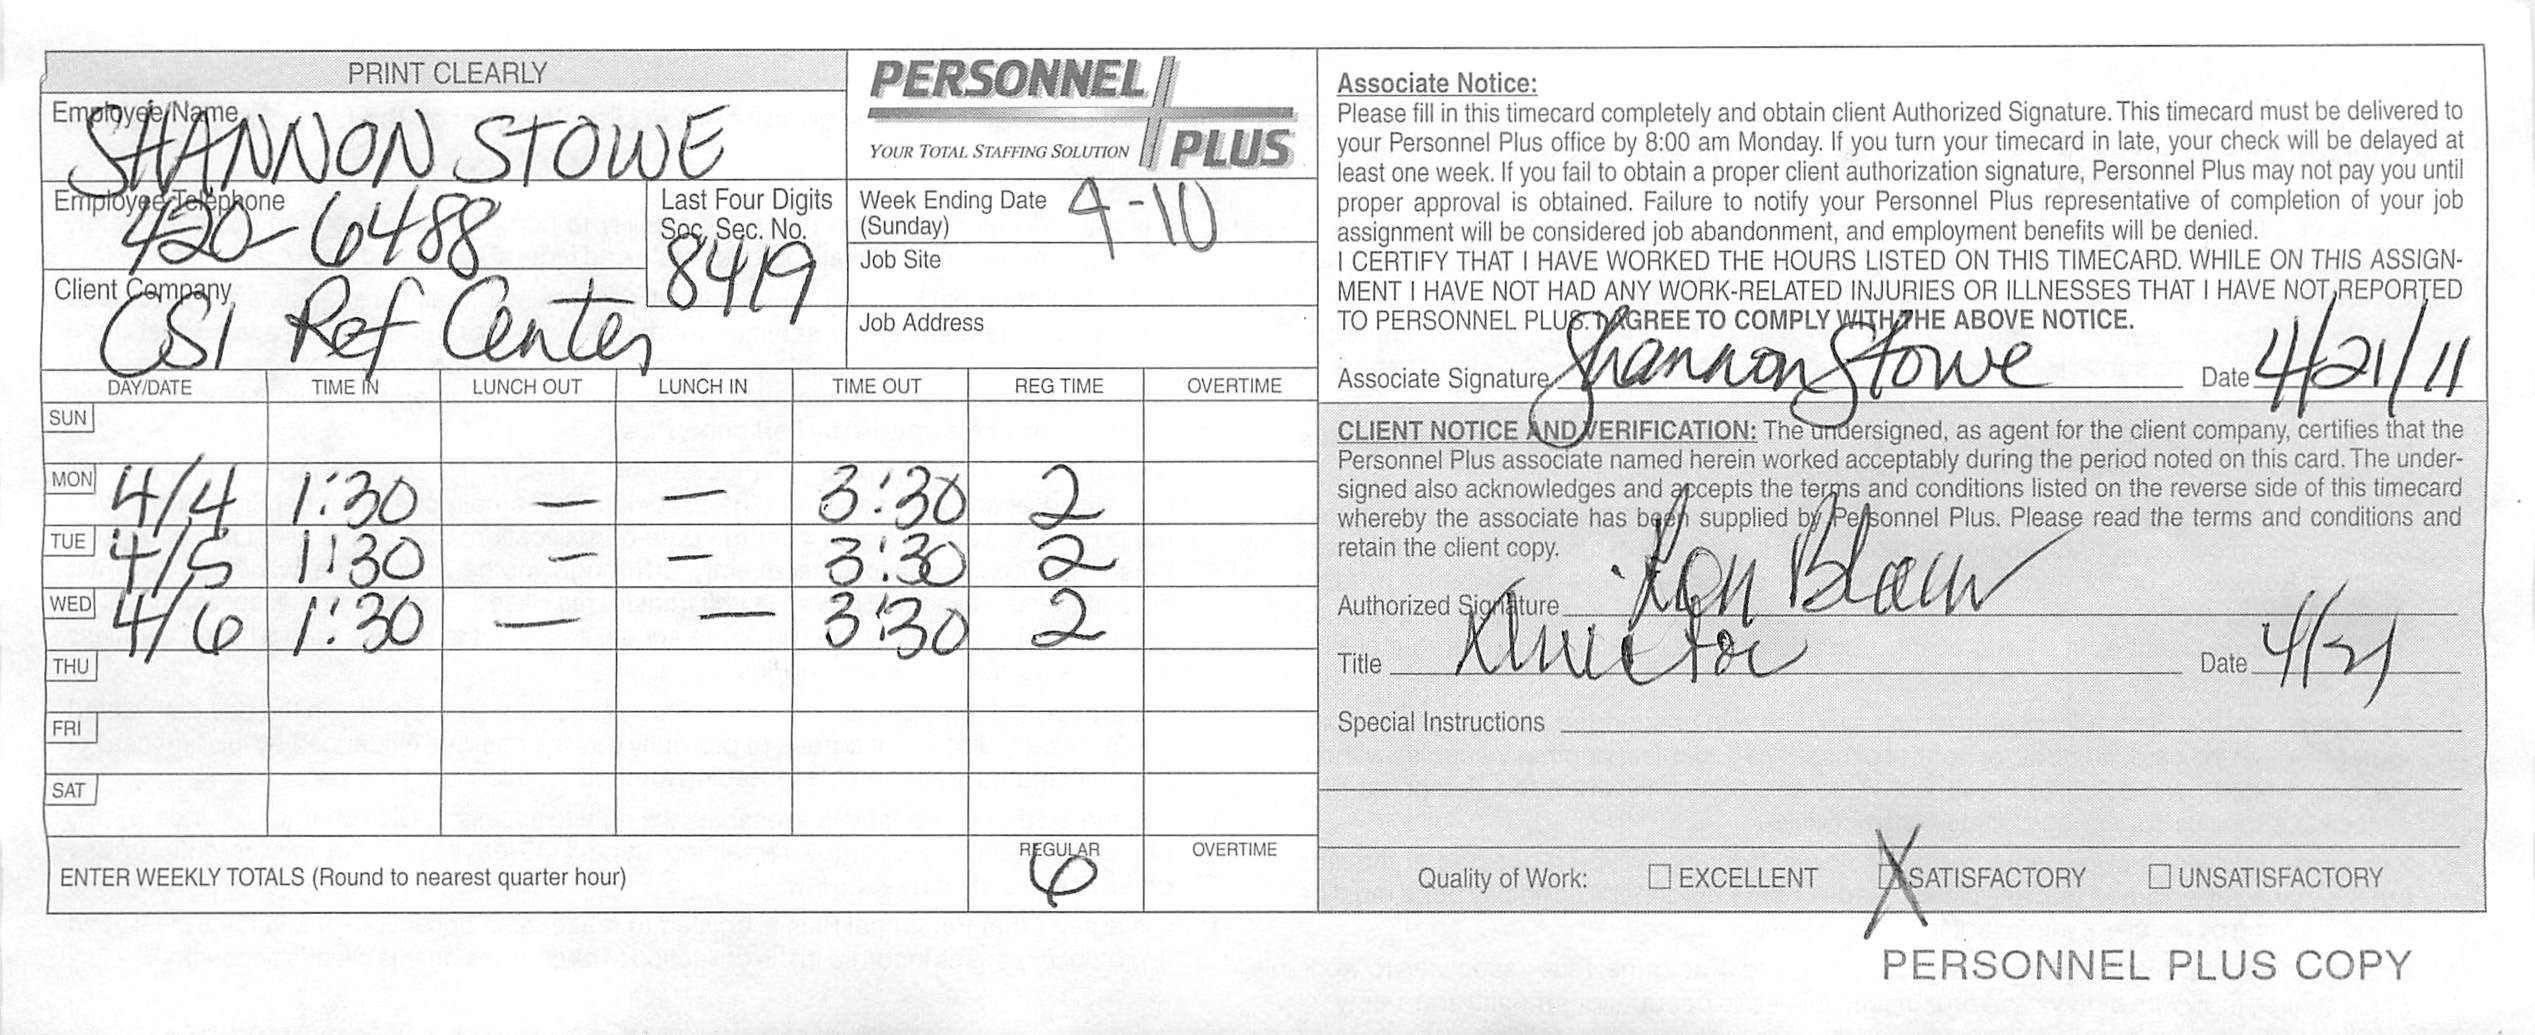 PRINT CLEARLY
Employee Name
SHANNON STOWE
Employee Telephone
420-6488
Last Four Digits
Soc. Sec. No.
8419
Client Company
CSI Ref Center
PERSONNEL
PLUS
YOUR TOTAL STAFFING SOLUTION
Week Ending Date
(Sunday)
4-10
Job Site
Job Address
DAY/DATE TIME IN LUNCH OUT LUNCH IN TIME OUT REG TIME OVERTIME
SUN
MON 4/4 1:30 — — 3:30 2
TUE 4/5 1:30 — — 3:30 2
WED 4/6 1:30 — — 3:30 2
THU
FRI
SAT
ENTER WEEKLY TOTALS (Round to nearest quarter hour)
REGULAR
6
OVERTIME
Associate Notice:
Please fill in this timecard completely and obtain client Authorized Signature. This timecard must be delivered to
your Personnel Plus office by 8:00 am Monday. If you turn your timecard in late, your check will be delayed at
least one week. If you fail to obtain a proper client authorization signature, Personnel Plus may not pay you until
proper approval is obtained. Failure to notify your Personnel Plus representative of completion of your job
assignment will be considered job abandonment, and employment benefits will be denied.
I CERTIFY THAT I HAVE WORKED THE HOURS LISTED ON THIS TIMECARD. WHILE ON THIS ASSIGN-
MENT I HAVE NOT HAD ANY WORK-RELATED INJURIES OR ILLNESSES THAT I HAVE NOT REPORTED
TO PERSONNEL PLUS. I AGREE TO COMPLY WITH THE ABOVE NOTICE.
Associate Signature Shannon Stowe Date 4/21/11
CLIENT NOTICE AND VERIFICATION: The undersigned, as agent for the client company, certifies that the
Personnel Plus associate named herein worked acceptably during the period noted on this card. The under-
signed also acknowledges and accepts the terms and conditions listed on the reverse side of this timecard
whereby the associate has been supplied by Personnel Plus. Please read the terms and conditions and
retain the client copy.
Authorized Signature
Title Director Date 4/21
Special Instructions
Quality of Work: EXCELLENT X SATISFACTORY UNSATISFACTORY
PERSONNEL PLUS COPY